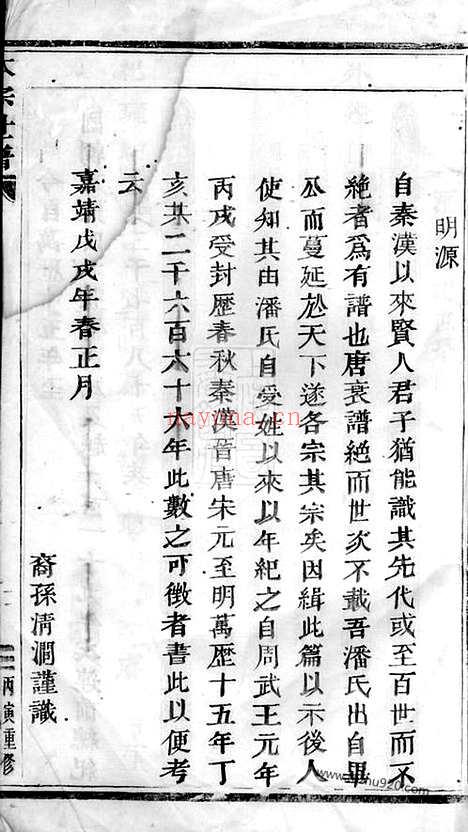 明源
自秦漢以來賢人君子猶能識其先代或至百世而不
絶者爲有譜也唐衰譜絶而世次不載吾潘氏出自畢
公而蔓延於天下遂各宗其宗矣因緝此篇以示後人
使知其由潘氏自受姓以來以年紀之自周武王元年
丙戌受封歷春秋秦漢晉唐宋元至明萬歷十五年丁
亥某二千六百六十六年此數之可徵者書此以便考
云
嘉靖戊戌年春正月
裔孫清澗謹識
丙寅重修
nayona.cn